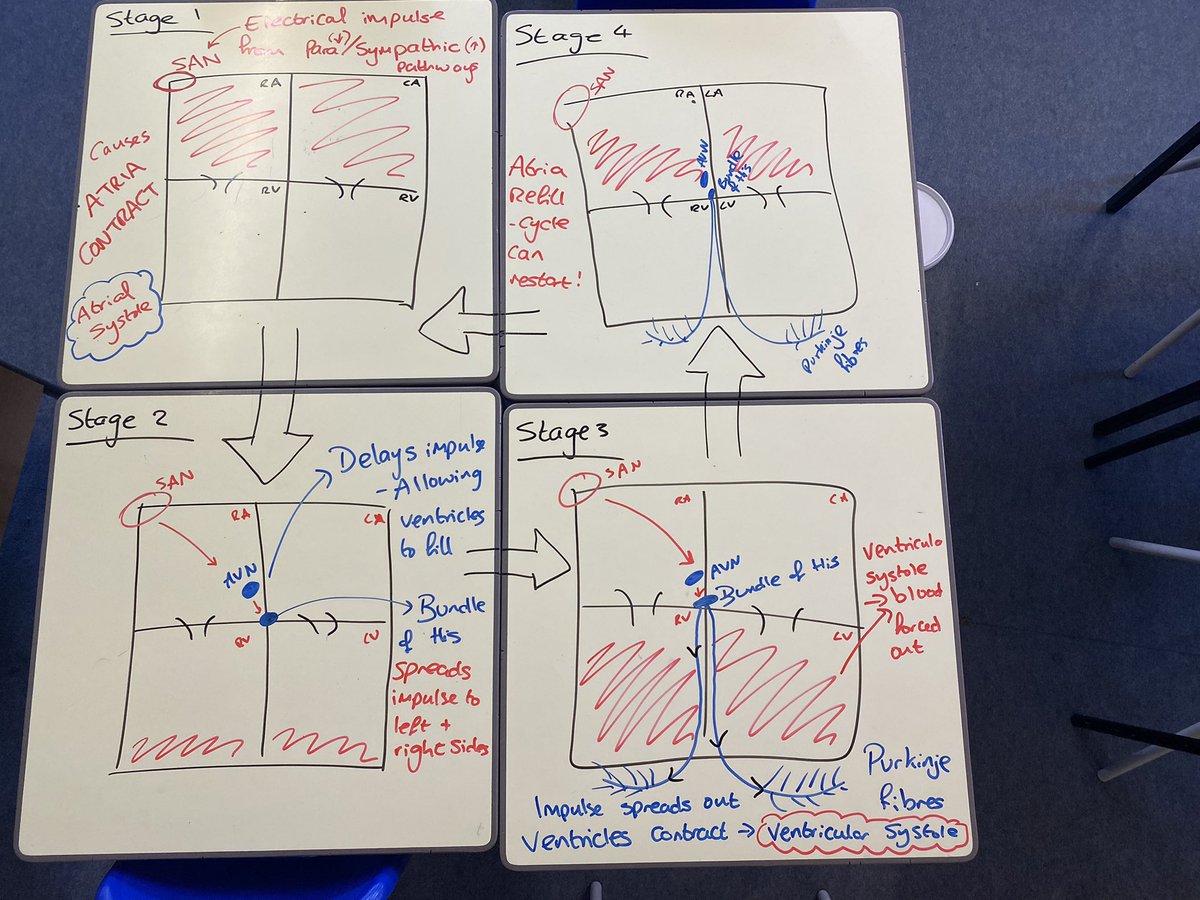 Stage 1
Electrical impulse
from Para(↓)/Sympathic(↑)
pathways
SAN
RA
LA
Causes
ATRIA
CONTRACT
RV
RV
Atrial
Systole
Stage 2
SAN
RA
LA
AVN
RV
LV
Delays impulse
- Allowing
ventricles
to fill
Bundle
of His
Spreads
impulse to
left +
right sides
Stage 3
SAN
RA
LA
AVN
Bundle of His
RV
LV
Ventricular
systole
→ blood
forced
out
Purkinje
fibres
Impulse spreads out
Ventricles contract → Ventricular Systole
Stage 4
SAN
RA
LA
AVN
Bundle
of His
RV
LV
Atria
Refill
- cycle
can
restart!
Purkinje
fibres